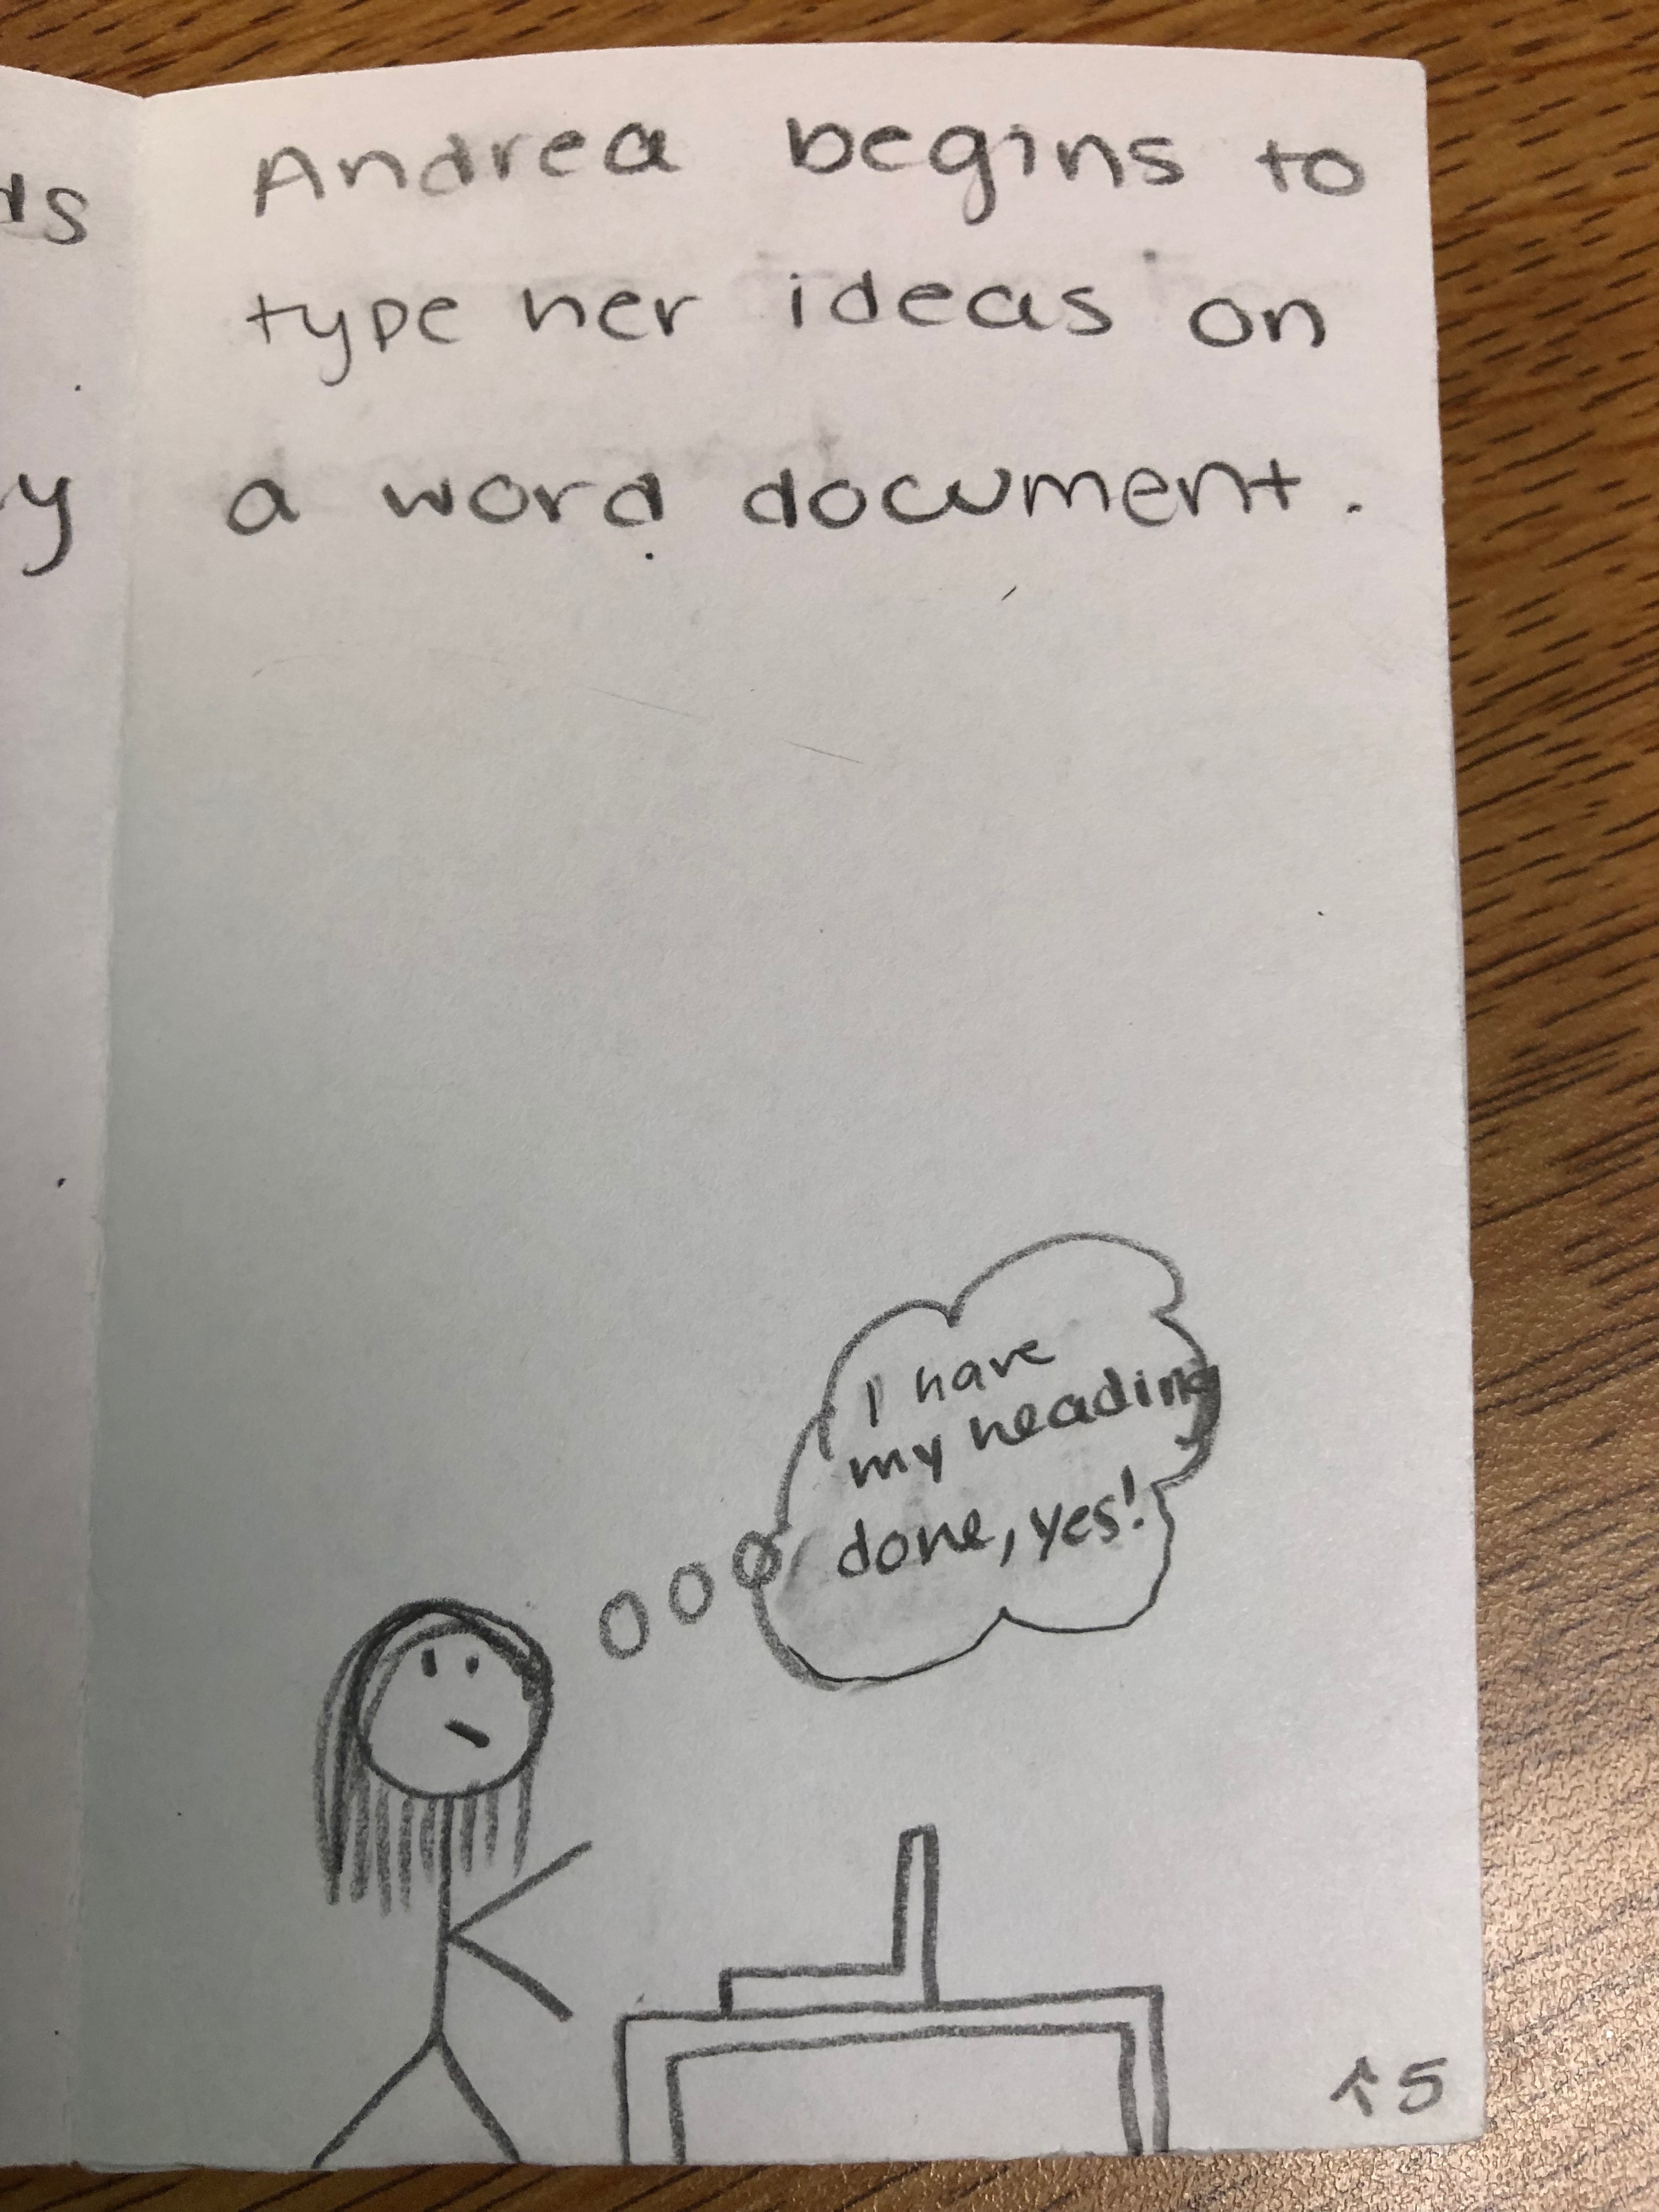 ds
y
Andrea begins to
type her ideas on
a word document.
I have
my heading
done, yes!
↑5